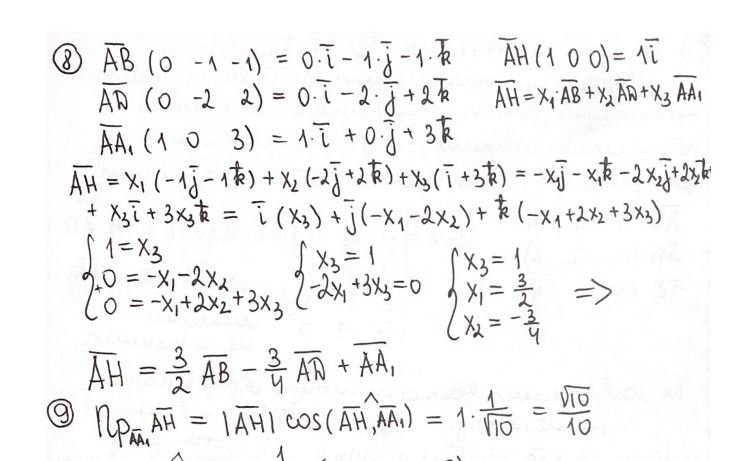 ⑧ A̅B̅ (0 -1 -1) = 0·i̅ - 1·j̅ - 1·k̅   A̅H̅ (1 0 0) = 1i̅
A̅D̅ (0 -2 2) = 0·i̅ - 2·j̅ + 2k̅   A̅H̅ = x₁·A̅B̅ + x₂ A̅D̅ + x₃ A̅A̅₁
A̅A̅₁ (1 0 3) = 1·i̅ + 0·j̅ + 3k̅
A̅H̅ = x₁ (-1j̅ - 1k̅) + x₂ (-2j̅ + 2k̅) + x₃ (i̅ + 3k̅) = -x₁j̅ - x₁k̅ - 2x₂j̅ + 2x₂k̅
+ x₃i̅ + 3x₃k̅ = i̅ (x₃) + j̅ (-x₁ - 2x₂) + k̅ (-x₁ + 2x₂ + 3x₃)
{ 1 = x₃   { x₃ = 1   { x₃ = 1
+ 0 = -x₁ - 2x₂   -2x₁ + 3x₃ = 0   x₁ = 3/2   =>
0 = -x₁ + 2x₂ + 3x₃   x₂ = -3/4
A̅H̅ = 3/2 A̅B̅ - 3/4 A̅D̅ + A̅A̅₁
⑨ Пр A̅A̅₁ A̅H̅ = |A̅H̅| cos (A̅H̅, A̅A̅₁) = 1 · 1/√10 = √10/10